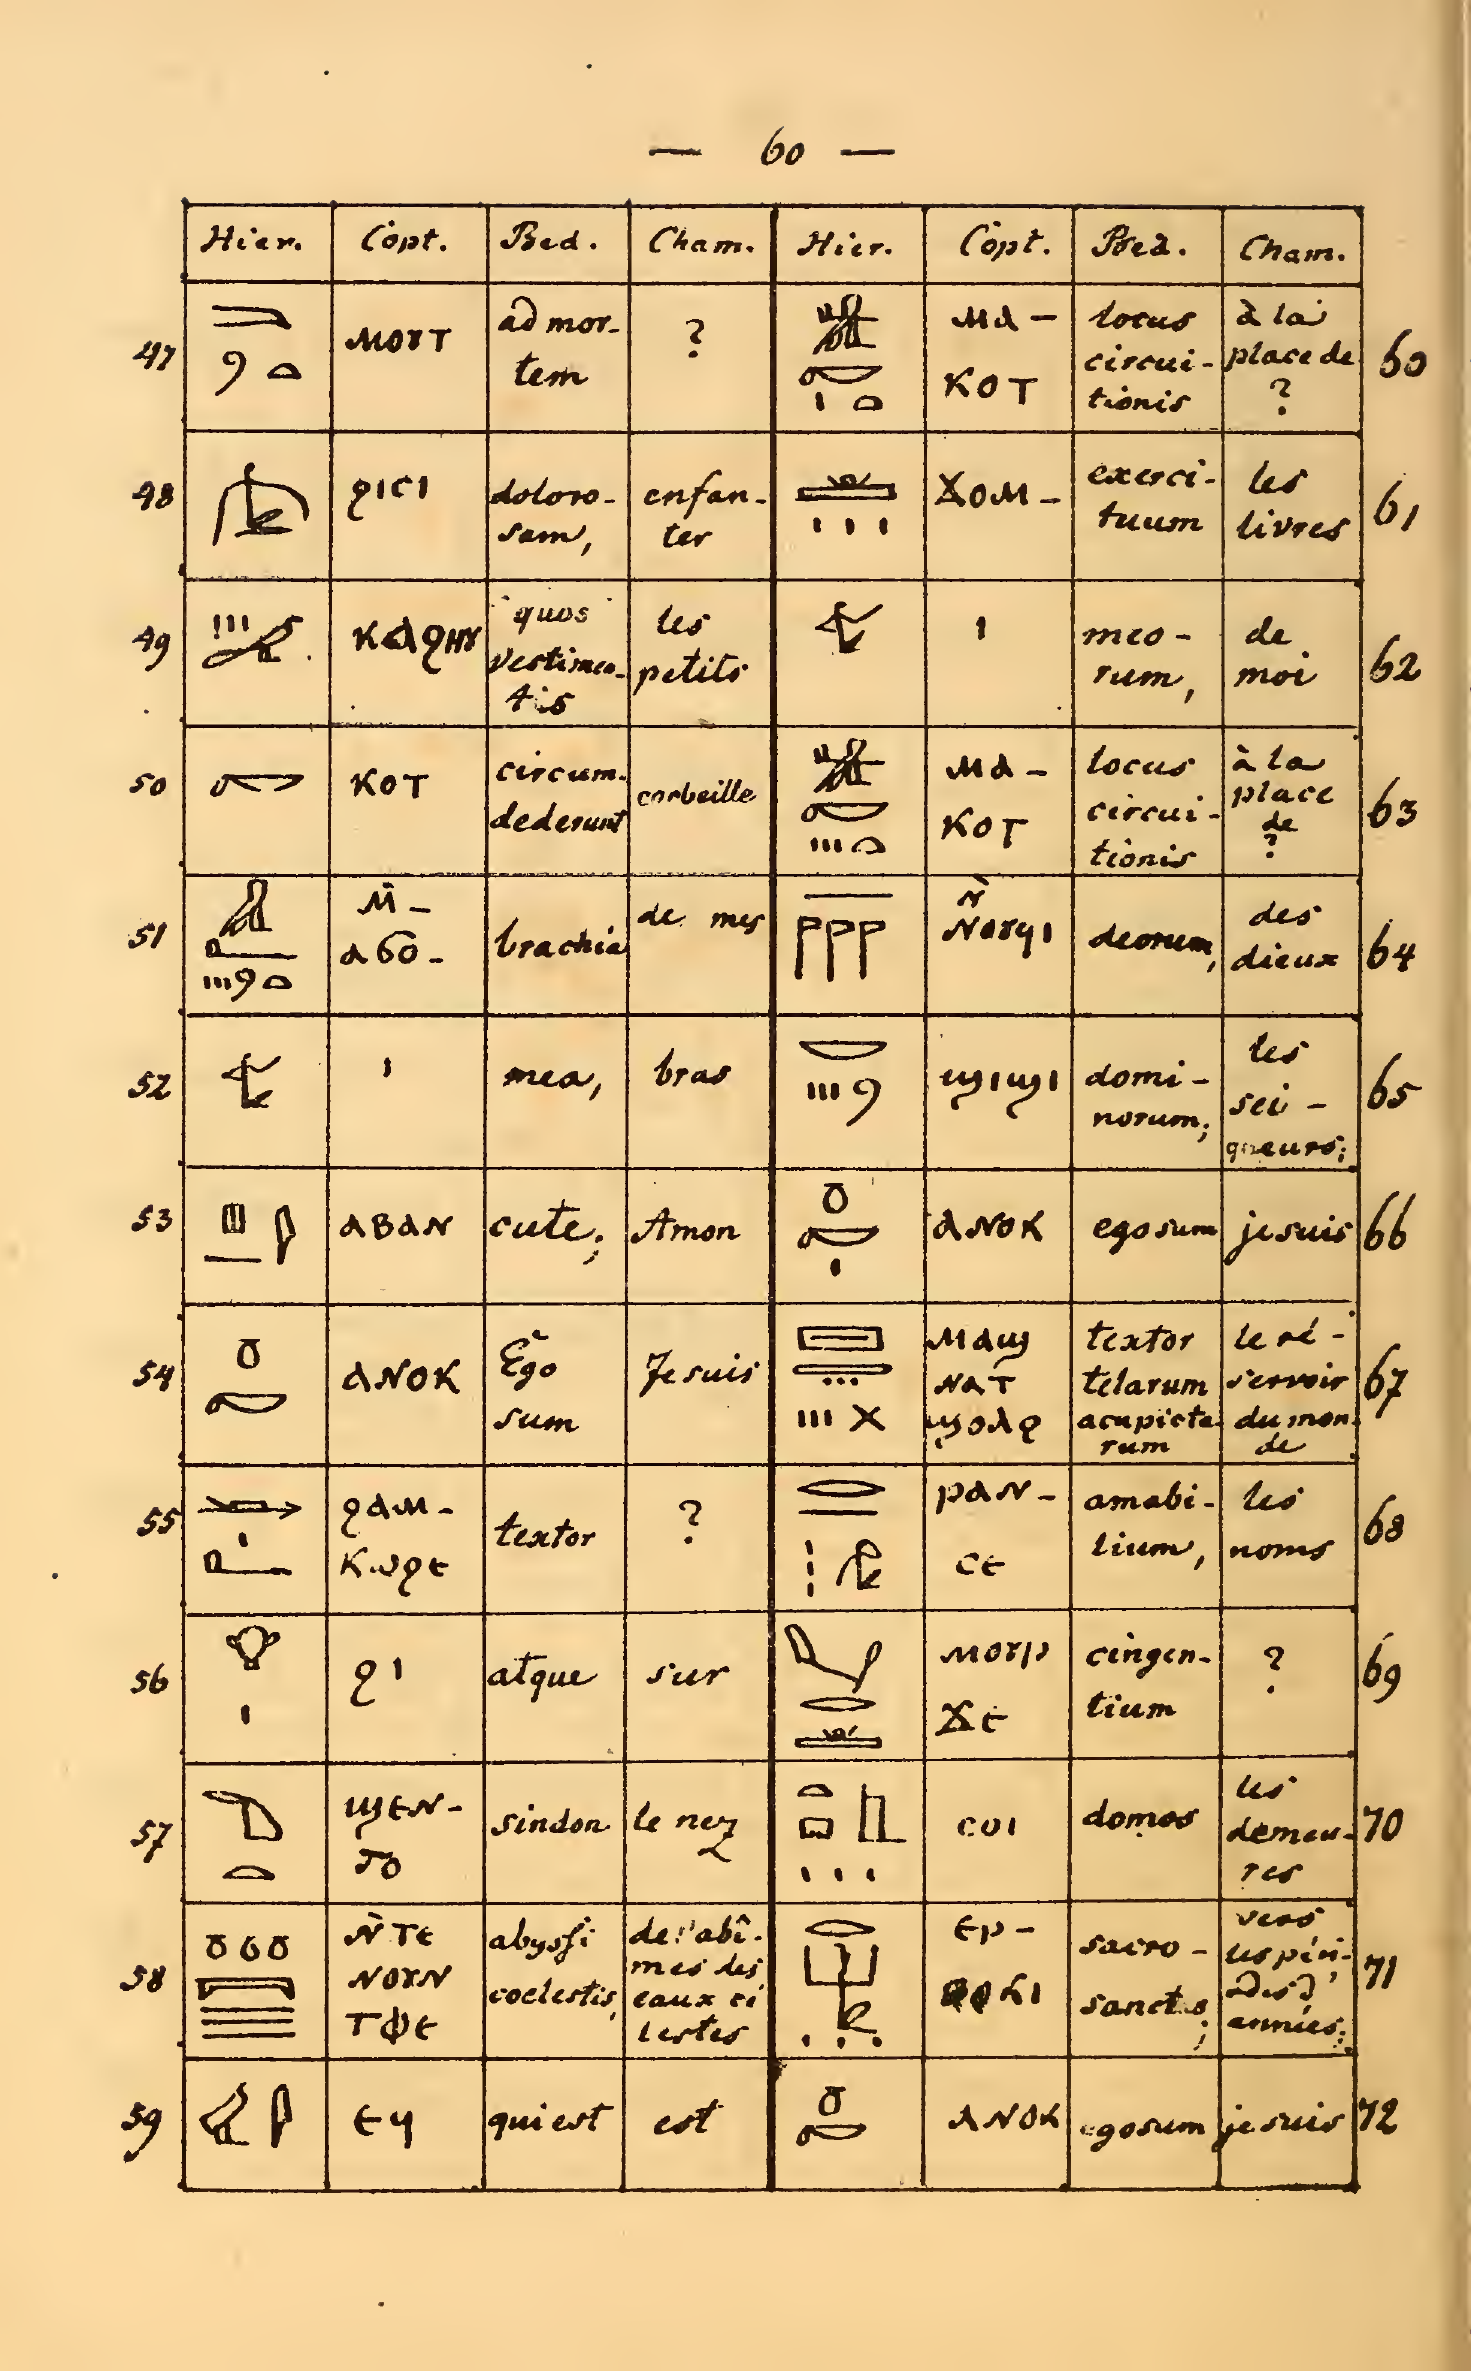 — 60 —
Hier. Copt. Bed. Cham. Hier. Copt. Bed. Cham.
47 ⲙⲟⲩⲧ ad mor-
tem ?
ⲙⲁ-
ⲕⲟⲧ locus
circui-
tionis à la
place de
? 60
48 ϩⲓⲥⲓ doloro-
sam, enfan-
ter
ϫⲟⲙ- exerci-
tuum les
livres 61
49 ⲕⲁϩⲏⲩ quos
vestimen-
tis les
petits
ⲓ meo-
rum, de
moi 62
50 ⲕⲟⲧ circum-
dederunt corbeille
ⲙⲁ-
ⲕⲟⲧ locus
circui-
tionis à la
place
de
? 63
51 ⲙ̀-
brachia de mes
ⲛ̀
deorum, des
dieux 64
52 ⲓ mea, bras
ϣⲓϣⲓ domi-
norum; les
sei-
gneurs; 65
53 ⲁⲃⲁⲛ cute; Amon
ⲁⲛⲟⲕ ego sum je suis 66
54 ⲁⲛⲟⲕ Ego
sum Je suis
ⲙⲁϣ
ⲛⲁⲧ
textor
telarum
acupicta-
rum le ré-
servoir
du mon-
de 67
55 ϩⲁⲙ-
ⲕⲱϩⲉ textor ?
ⲣⲁⲛ-
ⲥⲉ amabi-
lium, les
noms 68
56 ϩⲓ atque sur
ⲙⲟⲩⲣ
ϫⲉ cingen-
tium ? 69
57 ϣⲉⲛ-
ⲧⲟ sindon le nez
ⲥⲟⲓ domos les
demeu-
res 70
58 ⲛ̀ⲧⲉ
ⲛⲟⲩⲛ
ⲧⲫⲉ abyssi
coelestis, de l'abî-
mes des
eaux cé
lestes
ⲉⲣ-
sacro-
sanctos; vers
les péri-
odes d'
années; 71
59 ⲉϥ qui est est
ⲁⲛⲟⲕ ego sum je suis 72